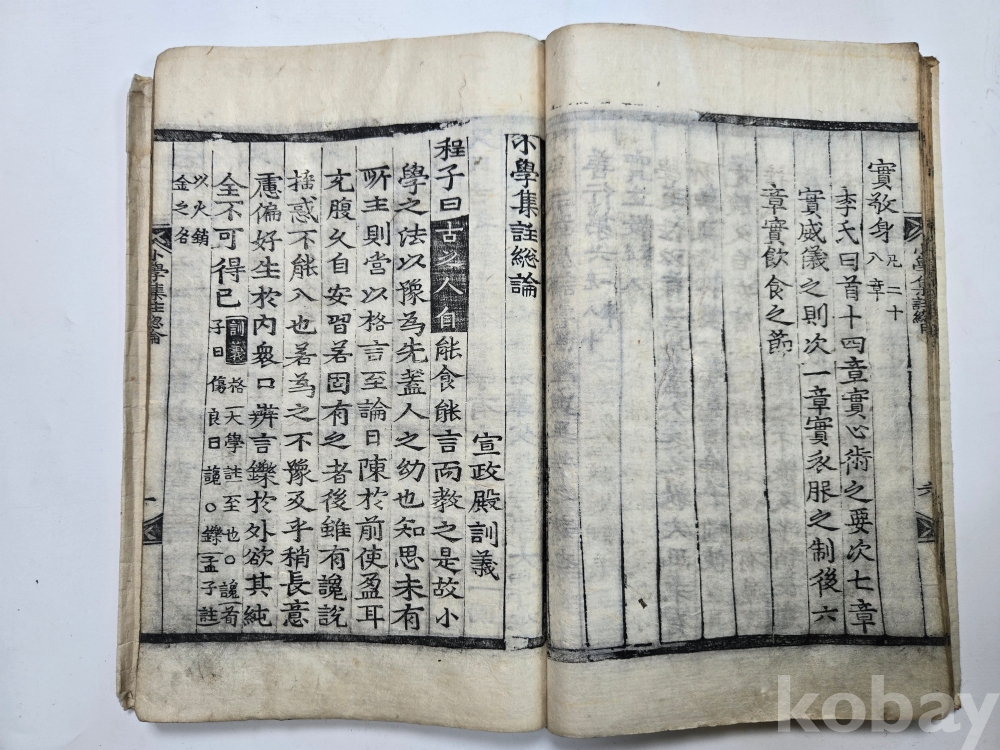 實敬身 凡二十
八章
李氏曰首十四章實心術之要次七章
實威儀之則次一章實衣服之制後六
章實飲食之節
六
小學集註總論
宣政殿訓義
程子曰古之人自能食能言而教之是故小
學之法以豫爲先蓋人之幼也知思未有
所主則當以格言至論日陳於前使盈耳
充腹久自安習若固有之者後雖有讒說
搖惑不能入也若爲之不豫及乎稍長意
慮偏好生於內衆口辨言鑠於外欲其純
全不可得已 訓義 格大學註至也○讒荀
子曰傷良曰讒○鑠孟子註
以火銷
金之名
小學集註總論
一
kobay